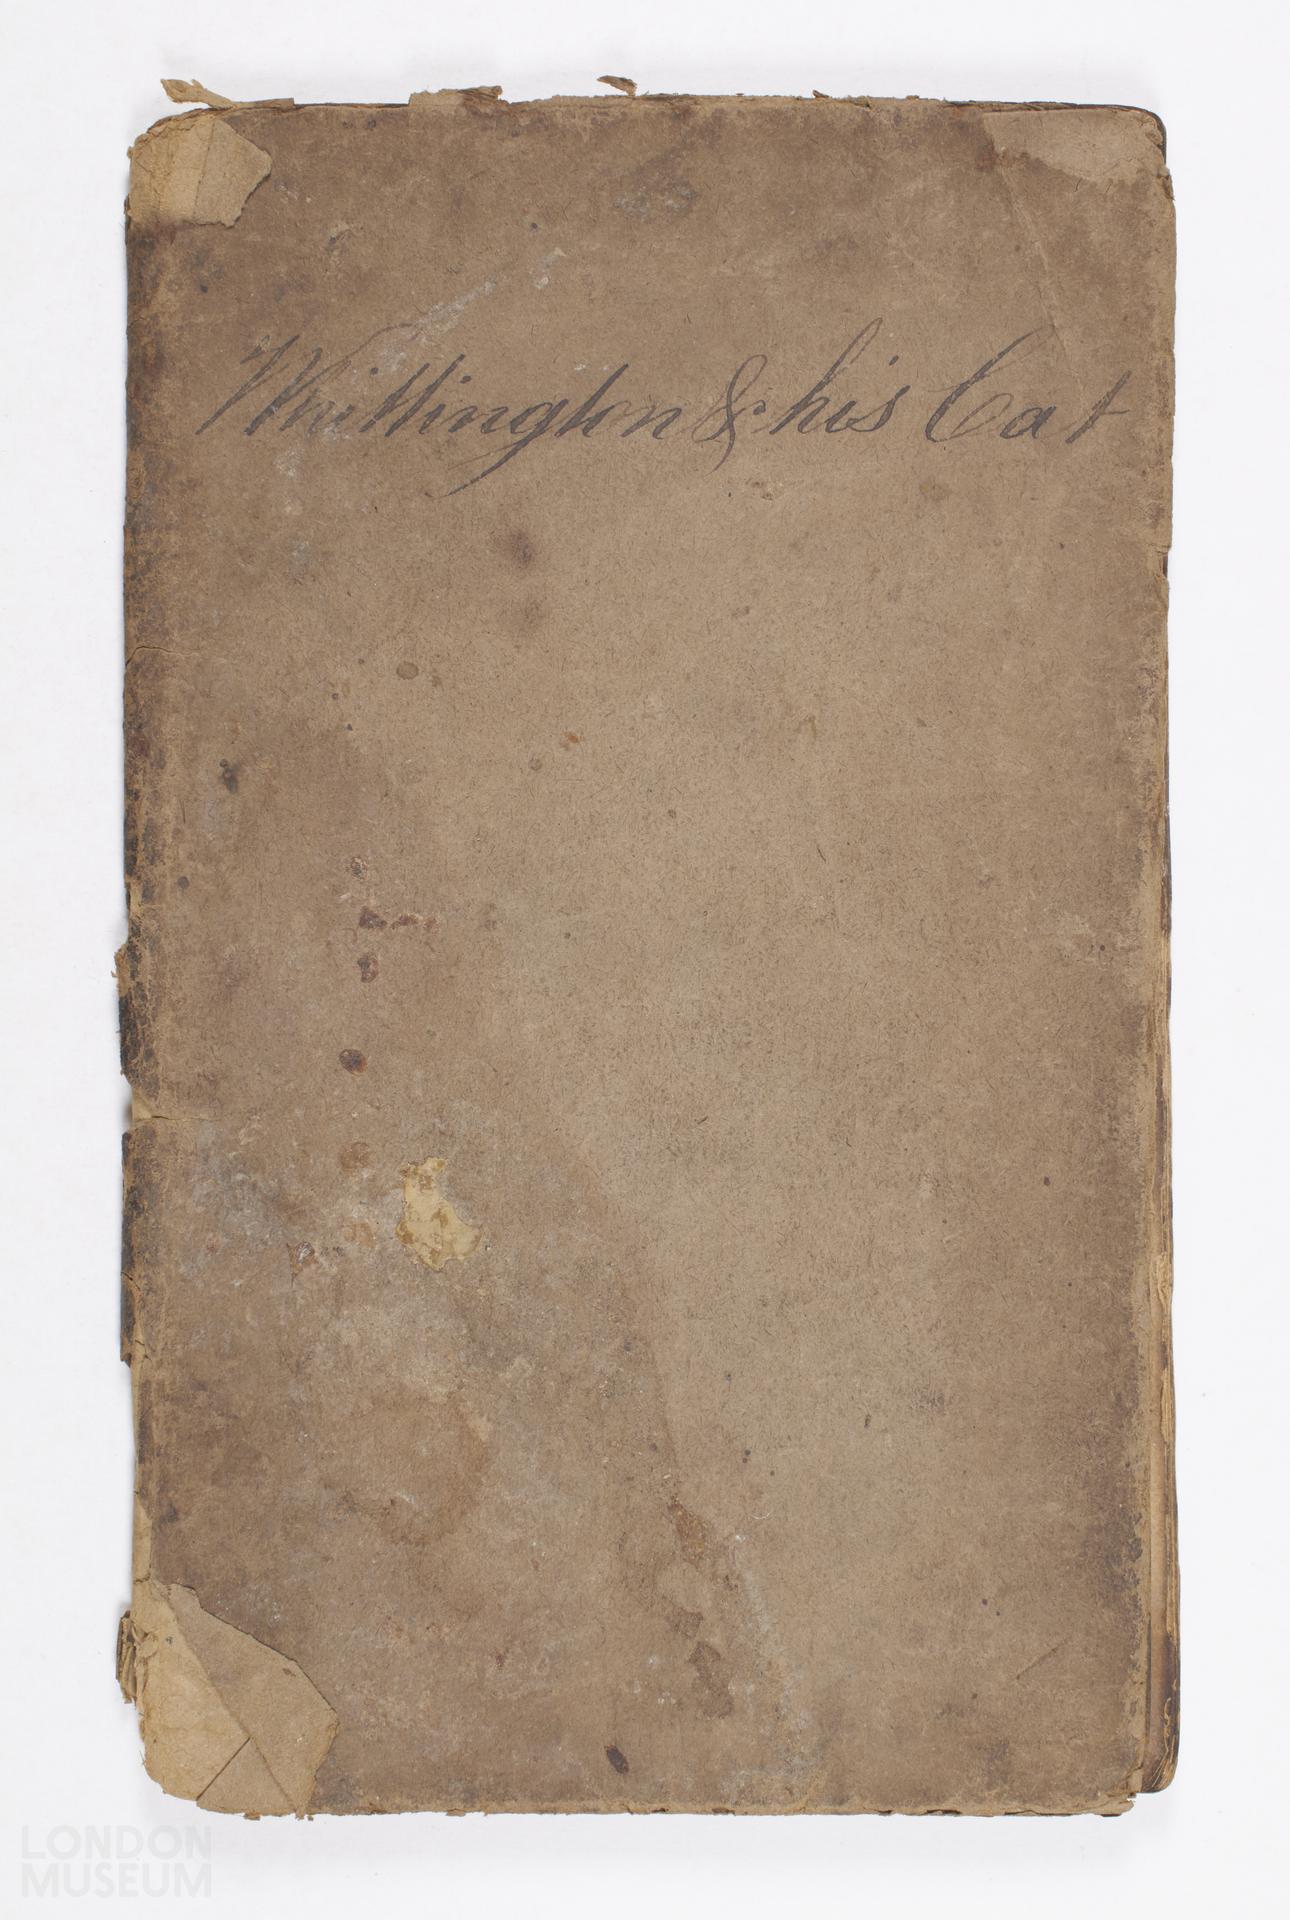 Whittington & his Cat
LONDON
MUSEUM